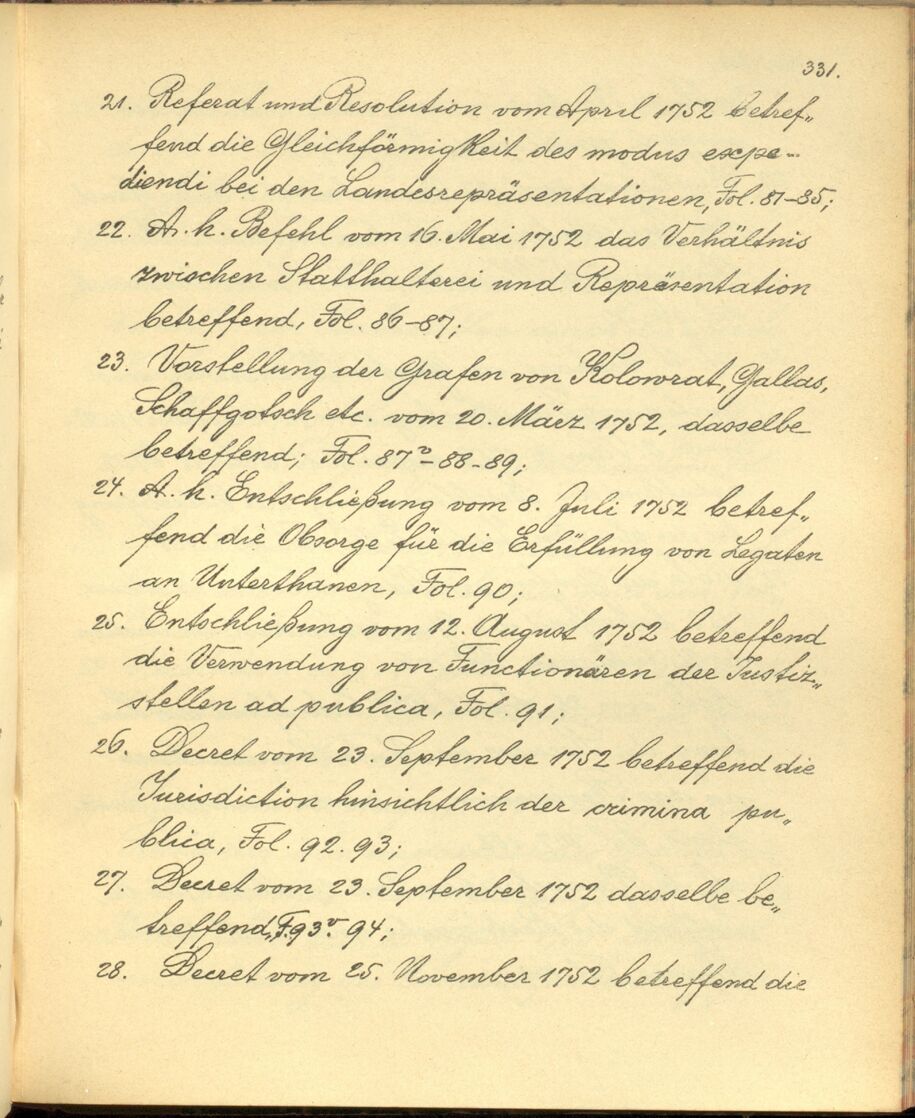 331.
21. Referat und Resolution vom April 1752 betref„
fend die Gleichförmigkeit des modus expe-
diendi bei den Landesrepräsentationen, Fol. 81-85;
22. A. h. Befehl vom 16. Mai 1752 das Verhältnis
zwischen Statthalterei und Repräsentation
betreffend, Fol. 86-87;
23. Vorstellung der Grafen von Kolowrat, Gallas,
Schaffgotsch etc. vom 20. März 1752, dasselbe
betreffend; Fol. 87ᵛ-88-89;
24. A. h. Entschließung vom 8. Juli 1752 betref„
fend die Obsorge für die Erfüllung von Legaten
an Unterthanen, Fol. 90;
25. Entschließung vom 12. August 1752 betreffend
die Verwendung von Functionären der Justiz„
stellen ad publica, Fol. 91;
26. Decret vom 23. September 1752 betreffend die
Jurisdiction hinsichtlich der crimina pu„
blica, Fol. 92. 93;
27. Decret vom 23. September 1752 dasselbe be„
treffend, F. 93ᵛ. 94;
28. Decret vom 25. November 1752 betreffend die